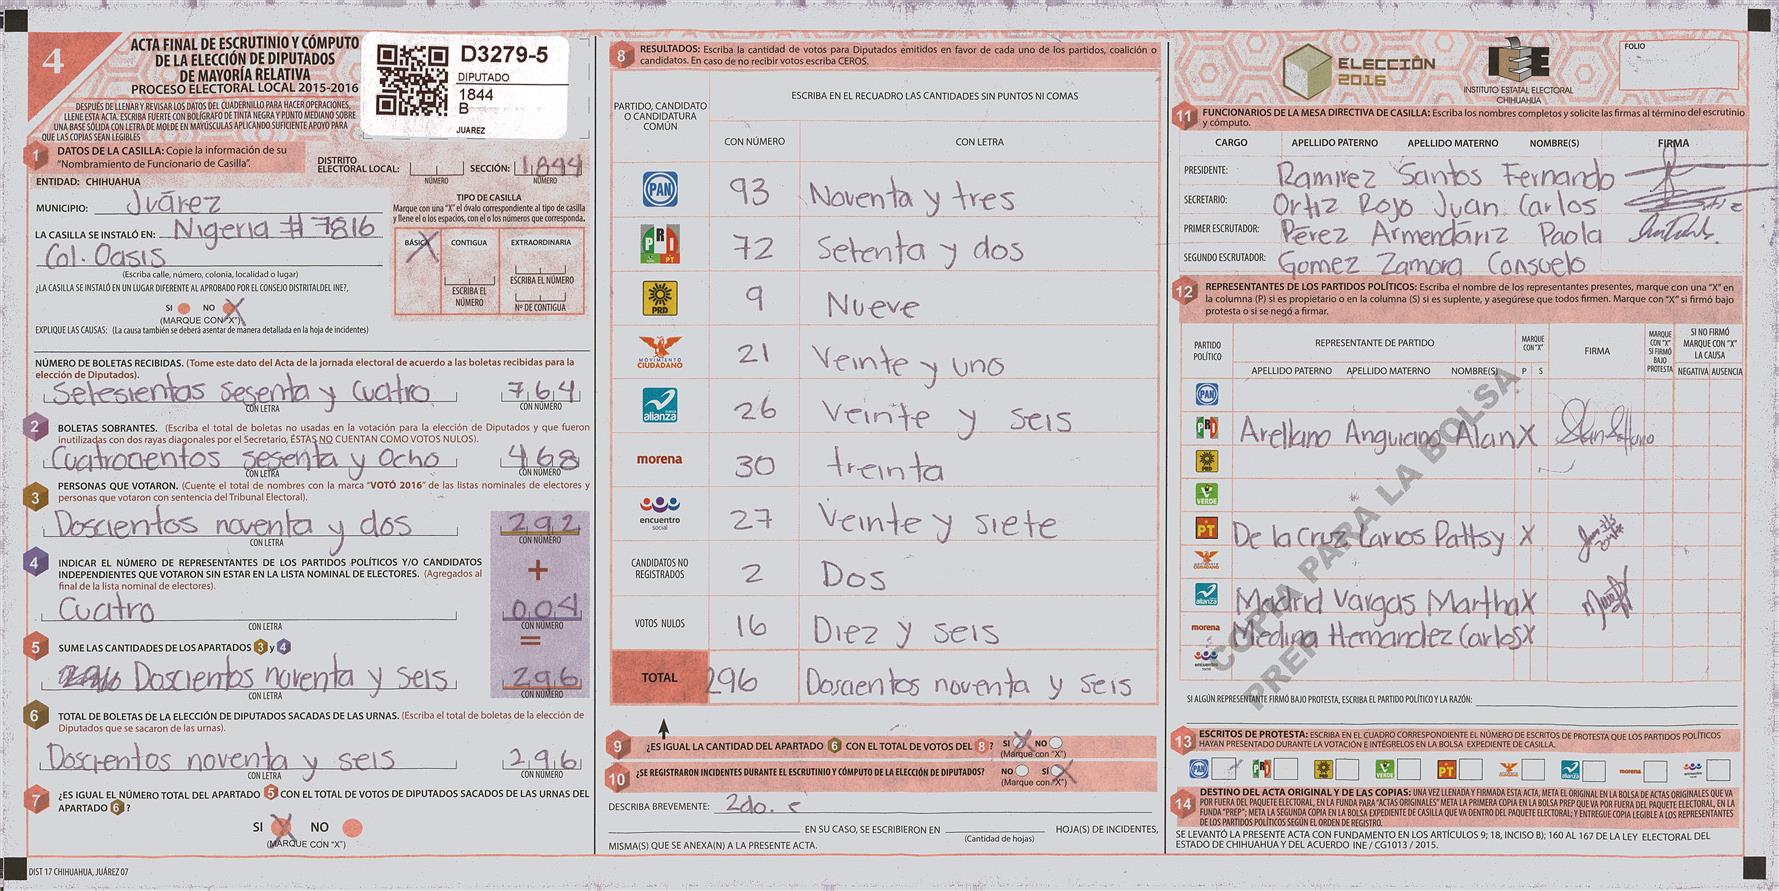 4
ACTA FINAL DE ESCRUTINIO Y CÓMPUTO
DE LA ELECCIÓN DE DIPUTADOS
DE MAYORÍA RELATIVA
PROCESO ELECTORAL LOCAL 2015-2016
DESPUÉS DE LLENAR Y REVISAR LOS DATOS DEL CUADERNILLO PARA HACER OPERACIONES,
LLENE ESTA ACTA. ESCRIBA FUERTE CON BOLÍGRAFO DE TINTA NEGRA Y PUNTO MEDIANO SOBRE
UNA BASE SÓLIDA CON LETRA DE MOLDE EN MAYÚSCULAS APLICANDO SUFICIENTE APOYO PARA
QUE LAS COPIAS SEAN LEGIBLES
D3279-5
DIPUTADO
1844
B
JUAREZ
1 DATOS DE LA CASILLA: Copie la información de su
"Nombramiento de Funcionario de Casilla".
DISTRITO
ELECTORAL LOCAL:
NÚMERO
SECCIÓN: 1844
NÚMERO
ENTIDAD: CHIHUAHUA
MUNICIPIO: Juárez
LA CASILLA SE INSTALÓ EN: Nigeria # 7816
Col. Oasis
(Escriba calle, número, colonia, localidad o lugar)
¿LA CASILLA SE INSTALÓ EN UN LUGAR DIFERENTE AL APROBADO POR EL CONSEJO DISTRITAL DEL INE?,
SI NO X
(MARQUE CON "X")
EXPLIQUE LAS CAUSAS: (La causa también se deberá asentar de manera detallada en la hoja de incidentes)
TIPO DE CASILLA
Marque con una "X" el óvalo correspondiente al tipo de casilla
y llene el o los espacios, con el o los números que corresponda.
BÁSICA X CONTIGUA EXTRAORDINARIA
ESCRIBA EL NÚMERO
ESCRIBA EL NÚMERO
Nº DE CONTIGUA
NÚMERO DE BOLETAS RECIBIDAS. (Tome este dato del Acta de la jornada electoral de acuerdo a las boletas recibidas para la
elección de Diputados).
Setesientas sesenta y Cuatro 764
CON LETRA CON NÚMERO
2 BOLETAS SOBRANTES. (Escriba el total de boletas no usadas en la votación para la elección de Diputados y que fueron
inutilizadas con dos rayas diagonales por el Secretario, ÉSTAS NO CUENTAN COMO VOTOS NULOS).
Cuatrocientos sesenta y Ocho 468
CON LETRA CON NÚMERO
3 PERSONAS QUE VOTARON. (Cuente el total de nombres con la marca "VOTÓ 2016" de las listas nominales de electores y
personas que votaron con sentencia del Tribunal Electoral).
Doscientos noventa y dos 292
CON LETRA CON NÚMERO
+
4 INDICAR EL NÚMERO DE REPRESENTANTES DE LOS PARTIDOS POLÍTICOS Y/O CANDIDATOS
INDEPENDIENTES QUE VOTARON SIN ESTAR EN LA LISTA NOMINAL DE ELECTORES. (Agregados al
final de la lista nominal de electores).
Cuatro 004
CON LETRA CON NÚMERO
=
5 SUME LAS CANTIDADES DE LOS APARTADOS 3 y 4
Doscientos noventa y seis 296
CON LETRA CON NÚMERO
6 TOTAL DE BOLETAS DE LA ELECCIÓN DE DIPUTADOS SACADAS DE LAS URNAS. (Escriba el total de boletas de la elección de
Diputados que se sacaron de las urnas).
Doscientos noventa y seis 296
CON LETRA CON NÚMERO
7 ¿ES IGUAL EL NÚMERO TOTAL DEL APARTADO 5 CON EL TOTAL DE VOTOS DE DIPUTADOS SACADOS DE LAS URNAS DEL
APARTADO 6?
SI X NO
(MARQUE CON "X")
DIST 17 CHIHUAHUA, JUÁREZ 07
8 RESULTADOS: Escriba la cantidad de votos para Diputados emitidos en favor de cada uno de los partidos, coalición o
candidatos. En caso de no recibir votos escriba CEROS.
PARTIDO, CANDIDATO
O CANDIDATURA
COMÚN
ESCRIBA EN EL RECUADRO LAS CANTIDADES SIN PUNTOS NI COMAS
CON NÚMERO CON LETRA
PAN 93 Noventa y tres
PRI PT 72 Setenta y dos
PRD 9 Nueve
MOVIMIENTO CIUDADANO 21 Veinte y uno
nueva alianza 26 Veinte y seis
morena 30 treinta
encuentro social 27 Veinte y siete
CANDIDATOS NO REGISTRADOS 2 Dos
VOTOS NULOS 16 Diez y seis
TOTAL 296 Doscientos noventa y seis
9 ¿ES IGUAL LA CANTIDAD DEL APARTADO 6 CON EL TOTAL DE VOTOS DEL 8? SI X NO
(Marque con "X")
10 ¿SE REGISTRARON INCIDENTES DURANTE EL ESCRUTINIO Y CÓMPUTO DE LA ELECCIÓN DE DIPUTADOS? NO SÍ X
(Marque con "X")
DESCRIBA BREVEMENTE: 2do. e
EN SU CASO, SE ESCRIBIERON EN HOJA(S) DE INCIDENTES,
(Cantidad de hojas)
MISMA(S) QUE SE ANEXA(N) A LA PRESENTE ACTA.
ELECCIÓN
2016
IEE
INSTITUTO ESTATAL ELECTORAL
CHIHUAHUA
FOLIO
11 FUNCIONARIOS DE LA MESA DIRECTIVA DE CASILLA: Escriba los nombres completos y solicite las firmas al término del escrutinio
y cómputo.
CARGO APELLIDO PATERNO APELLIDO MATERNO NOMBRE(S) FIRMA
PRESIDENTE: Ramirez Santos Fernando
SECRETARIO: Ortiz Rojo Juan Carlos
PRIMER ESCRUTADOR: Pérez Armendáriz Paola
SEGUNDO ESCRUTADOR: Gomez Zamora Consuelo
12 REPRESENTANTES DE LOS PARTIDOS POLÍTICOS: Escriba el nombre de los representantes presentes, marque con una "X" en
la columna (P) si es propietario o en la columna (S) si es suplente, y asegúrese que todos firmen. Marque con "X" si firmó bajo
protesta o si se negó a firmar.
PARTIDO
POLÍTICO
REPRESENTANTE DE PARTIDO
MARQUE
CON "X"
FIRMA
MARQUE
CON "X"
SI FIRMÓ
BAJO
PROTESTA
SI NO FIRMÓ
MARQUE CON "X"
LA CAUSA
APELLIDO PATERNO APELLIDO MATERNO NOMBRE(S) P S NEGATIVA AUSENCIA
PAN
PRI Arellano Anguiano Alan X
PRD
VERDE
PT De la Cruz Carlos Pattsy X
alianza Madrid Vargas Martha X
morena Medina Hernandez Carlos X
COPIA PARA LA BOLSA
PREP
SI ALGÚN REPRESENTANTE FIRMÓ BAJO PROTESTA, ESCRIBA EL PARTIDO POLÍTICO Y LA RAZÓN:
13 ESCRITOS DE PROTESTA: ESCRIBA EN EL CUADRO CORRESPONDIENTE EL NÚMERO DE ESCRITOS DE PROTESTA QUE LOS PARTIDOS POLÍTICOS
HAYAN PRESENTADO DURANTE LA VOTACIÓN E INTÉGRELOS EN LA BOLSA EXPEDIENTE DE CASILLA.
PAN PRI PRD VERDE PT alianza morena
14 DESTINO DEL ACTA ORIGINAL Y DE LAS COPIAS: UNA VEZ LLENADA Y FIRMADA ESTA ACTA, META EL ORIGINAL EN LA BOLSA DE ACTAS ORIGINALES QUE VA
POR FUERA DEL PAQUETE ELECTORAL, EN LA FUNDA PARA "ACTAS ORIGINALES" META LA PRIMERA COPIA EN LA BOLSA PREP QUE VA POR FUERA DEL PAQUETE ELECTORAL, EN LA
FUNDA "PREP"; META LA SEGUNDA COPIA EN LA BOLSA EXPEDIENTE DE CASILLA QUE VA DENTRO DEL PAQUETE ELECTORAL; Y ENTREGUE COPIA LEGIBLE A LOS REPRESENTANTES
DE LOS PARTIDOS POLÍTICOS SEGÚN EL ORDEN DE REGISTRO.
SE LEVANTÓ LA PRESENTE ACTA CON FUNDAMENTO EN LOS ARTÍCULOS 9; 18, INCISO B); 160 AL 167 DE LA LEY ELECTORAL DEL
ESTADO DE CHIHUAHUA Y DEL ACUERDO INE / CG1013 / 2015.